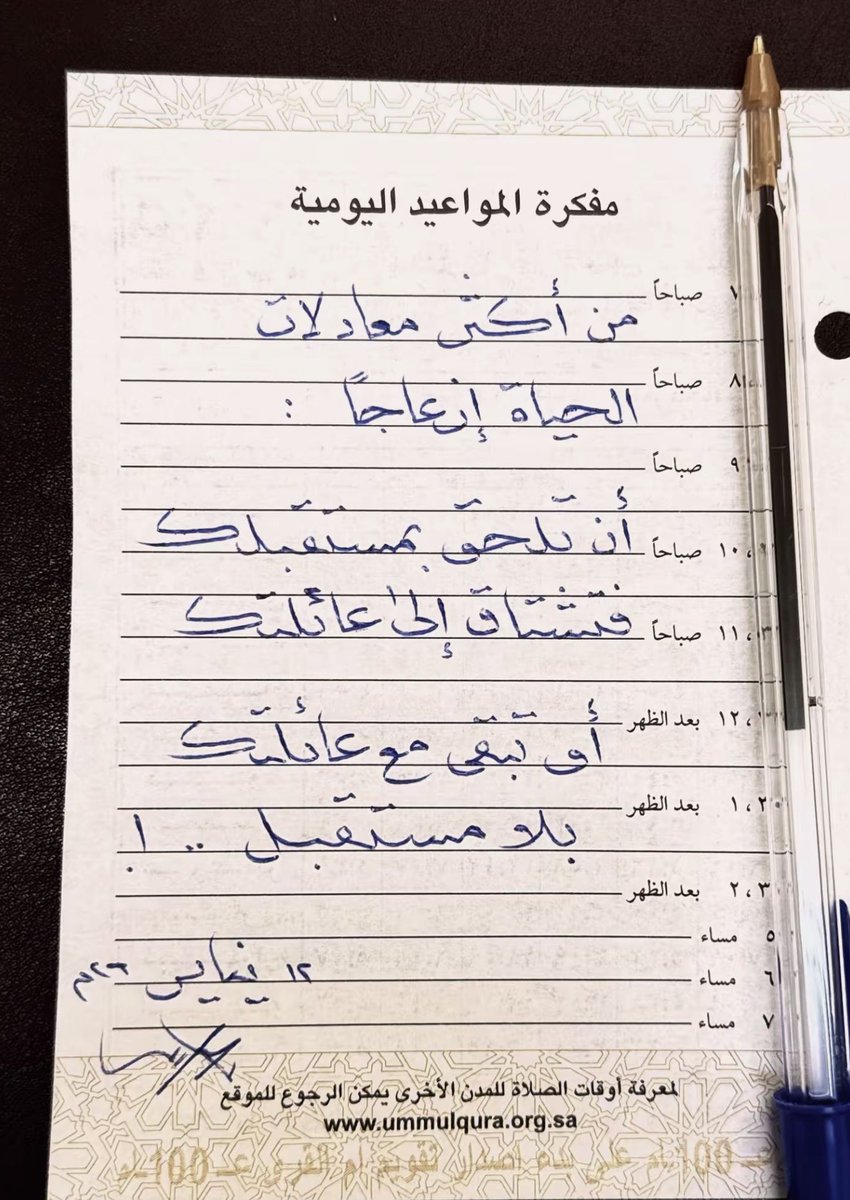 مفكرة المواعيد اليومية
٧ صباحاً
من أكثر معادلات
٨ صباحاً
الحياة إزعاجاً :
٩ صباحاً
أن تلحق بمستقبلك
١٠ صباحاً
فتشتاق إلى عائلتك
١١ صباحاً
١٢،١ بعد الظهر
أو تبقى مع عائلتك
١،٢ بعد الظهر
بلا مستقبل .. !
٢،٣ بعد الظهر
٥ مساء
١٢ يناير ٢٦م
٦ مساء
٧ مساء
لمعرفة أوقات الصلاة للمدن الأخرى يمكن الرجوع للموقع
www.ummulqura.org.sa